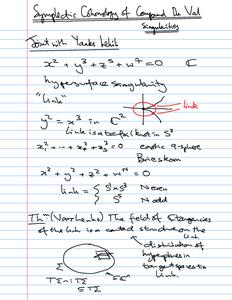 Symplectic Cohomology of Compound Du Val
Singularities
Joint with Yankı Lekili
x² + y³ + z⁵ + w⁷ = 0 ℂ
hypersurface singularity
"link"
link
y² = x³ in ℂ²
link is a trefoil knot in S³
= 0 exotic 9-sphere
Brieskorn
x² + y² + z² + wᴺ = 0
link = { S²×S³ N even
S⁵ N odd
Thᵐ (Varchenko) The field of ξ tangencies
of the link is a contact structure on the link
distribution of
hyperplanes in
tangent spaces to
link.
Σ